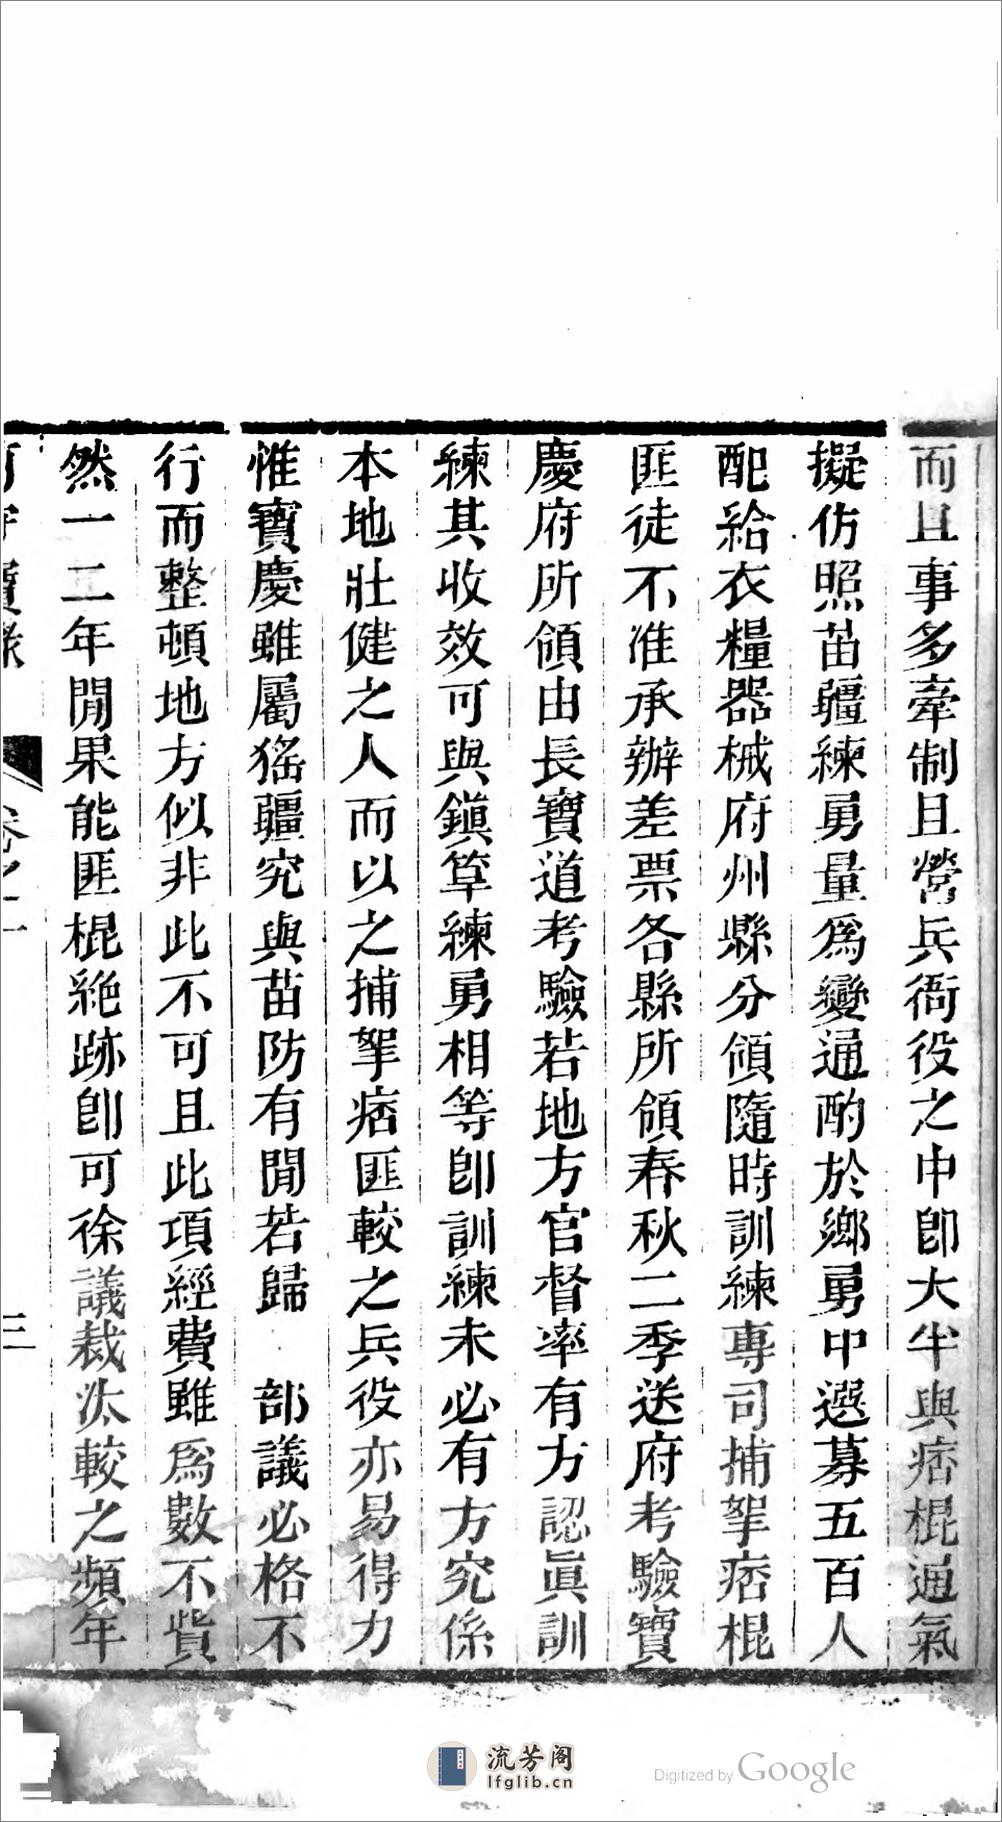 而且事多牽制且營兵衙役之中卽大半與痞棍通氣
擬仿照苗疆練勇量爲變通酌於鄉勇中選募五百人
配給衣糧器械府州縣分領隨時訓練專司捕拏痞棍
匪徒不准承辦差票各縣所領春秋二季送府考驗寶
慶府所領由長寶道考驗若地方官督率有方認眞訓
練其收效可與鎭筸練勇相等卽訓練未必有方究係
本地壯健之人而以之捕拏痞匪較之兵役亦易得力
惟寶慶雖屬猺疆究與苗防有閒若歸 部議必格不
行而整頓地方似非此不可且此項經費雖爲數不貲
然一二年閒果能匪棍絶跡卽可徐議裁汰較之頻年
卷之一
三
流芳阁
lfglib.cn
Digitized by Google